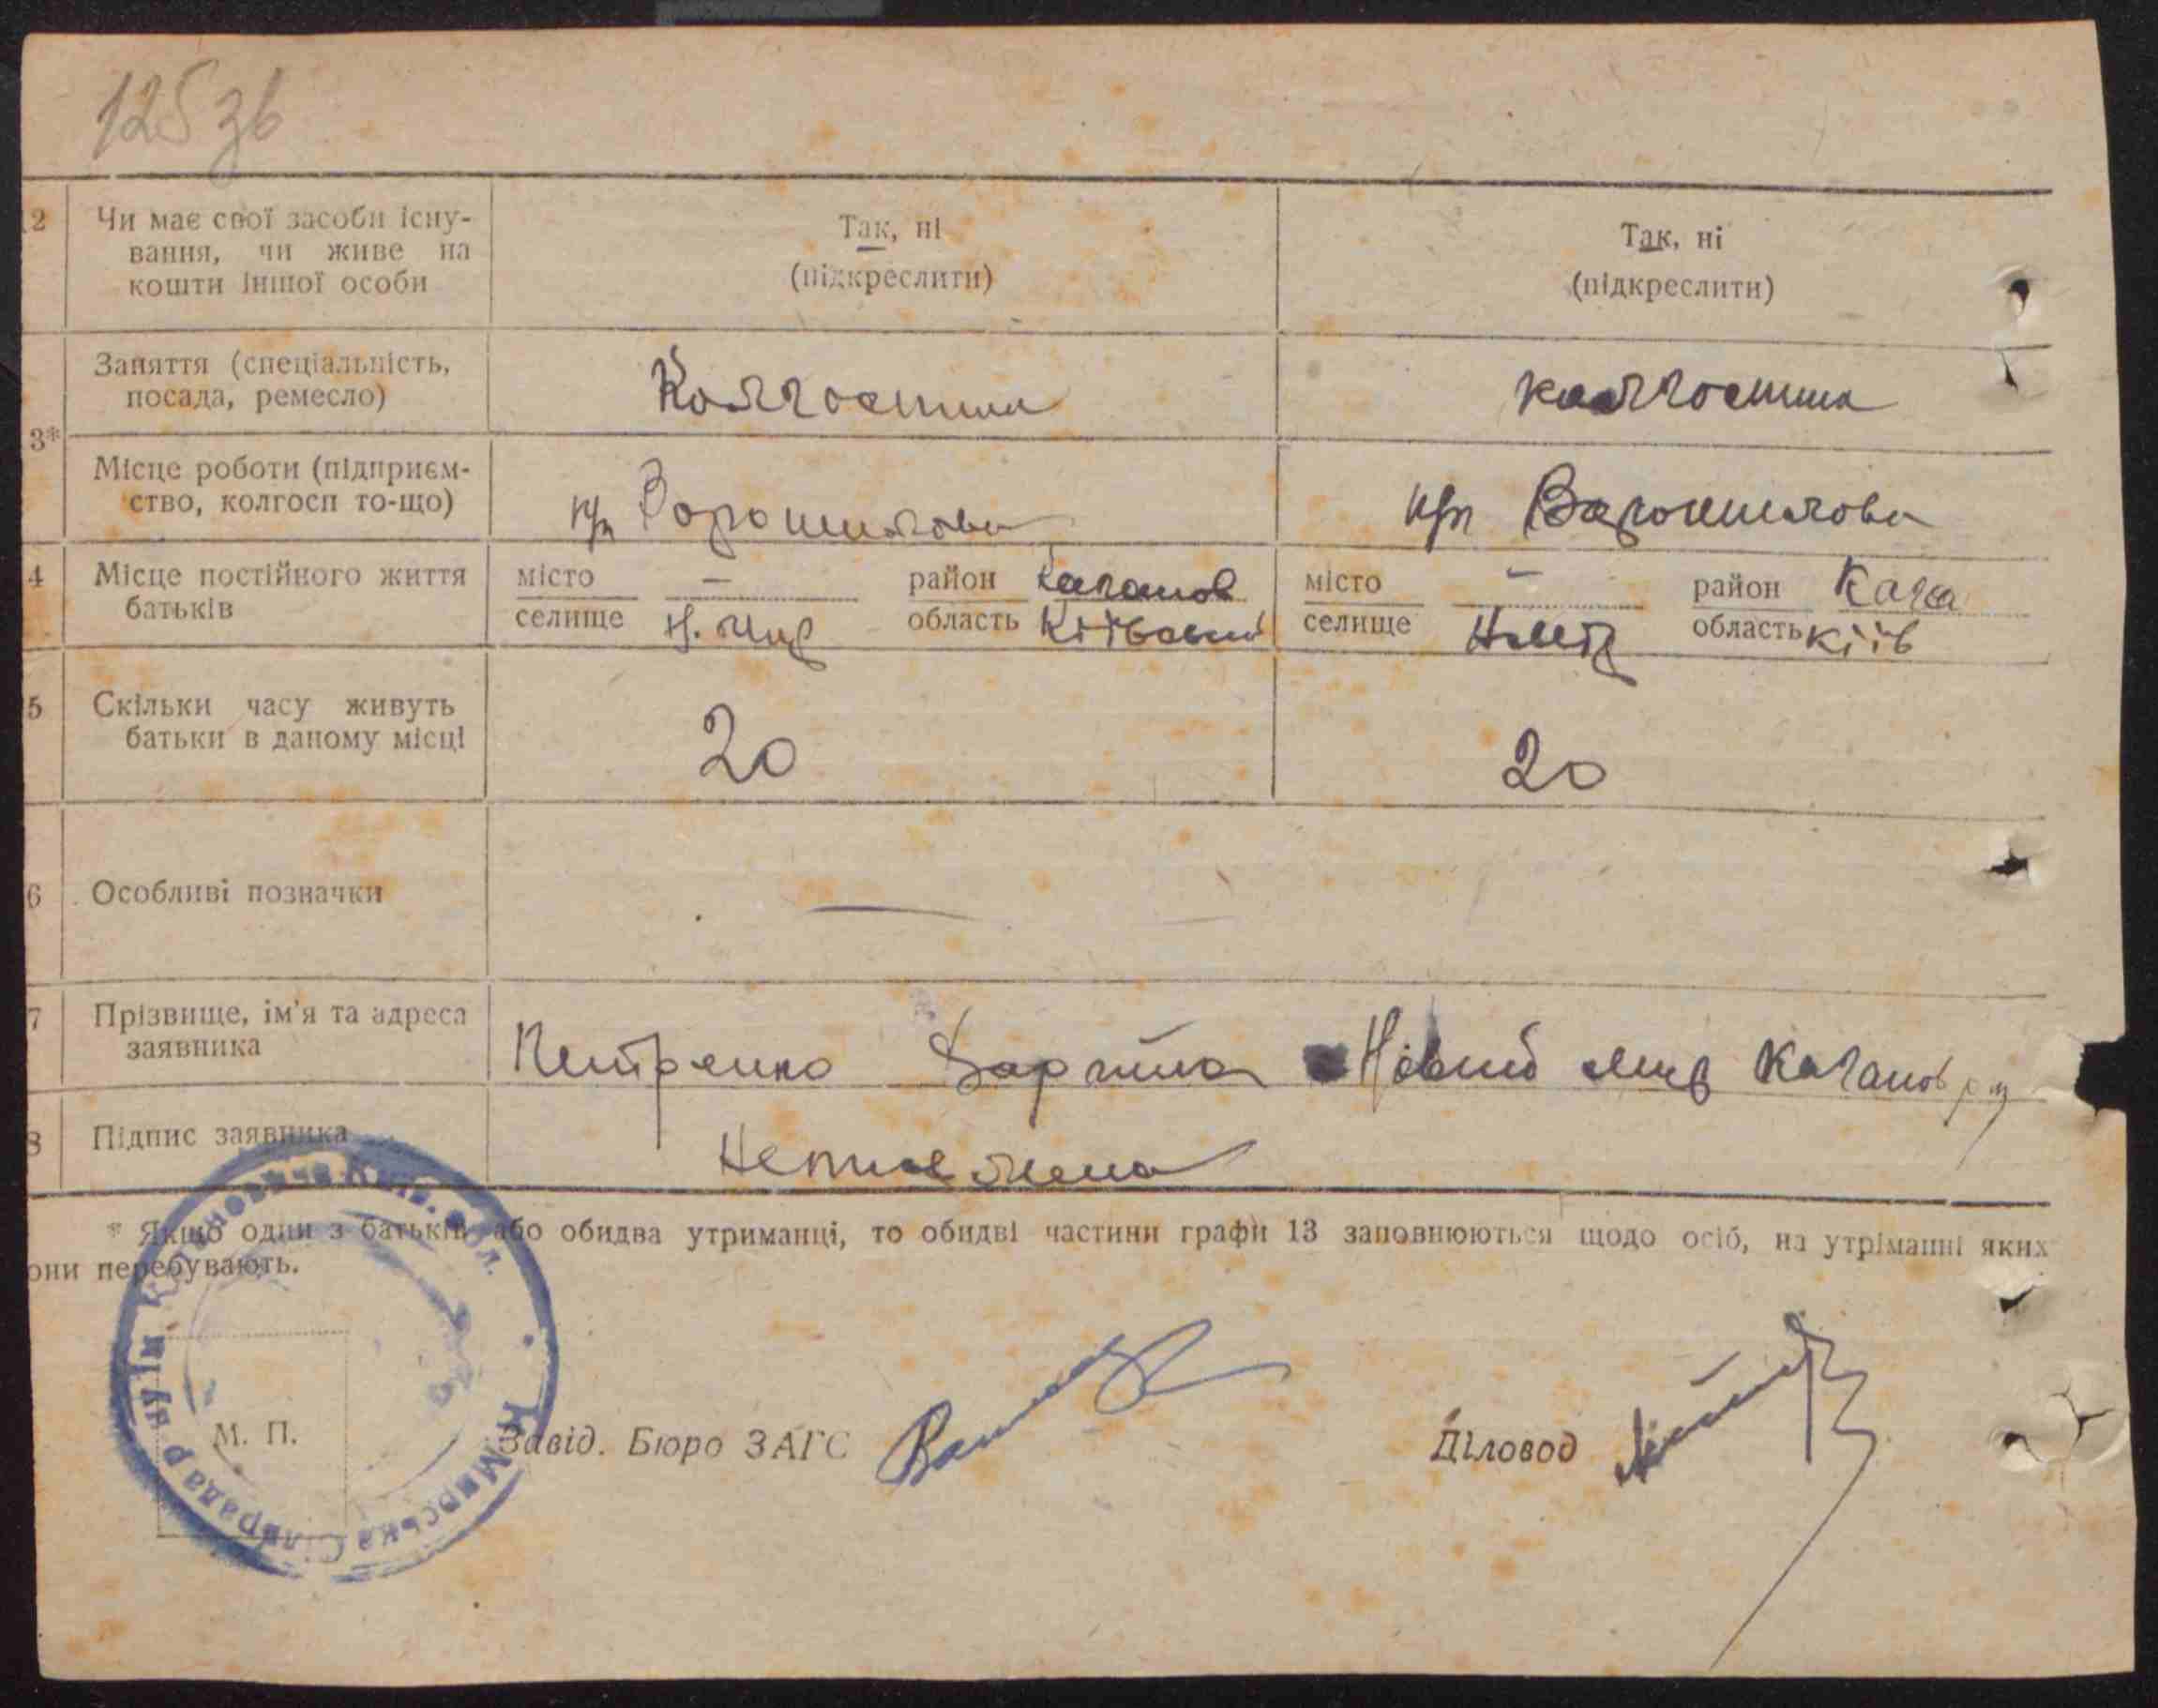 125 зв
2 Чи має свої засоби існу-
вання, чи живе на
кошти іншої особи
Так, ні
(підкреслити)
Так, ні
(підкреслити)
3*
Заняття (спеціальність,
посада, ремесло)
Колгоспник
колгоспник
Місце роботи (підприєм-
ство, колгосп то-що)
Ворошилова
Ворошилова
4 Місце постійного життя
батьків
місто — район Каганов
селище Н. Мир область Київський
місто — район Кага
селище Н Мир область Київ
5 Скільки часу живуть
батьки в даному місці
20
20
6 Особливі позначки
—
7 Прізвище, ім'я та адреса
заявника
Петренко Новий мир Каганов
8 Підпис заявника
* Якщо один з батьків або обидва утриманці, то обидві частини графи 13 заповнюються щодо осіб, на утріманні яких
они перебувають.
М. П.
Завід. Бюро ЗАГС
Діловод
Н Мирська Сільрада р ну ім Кагановича Київ. обл.